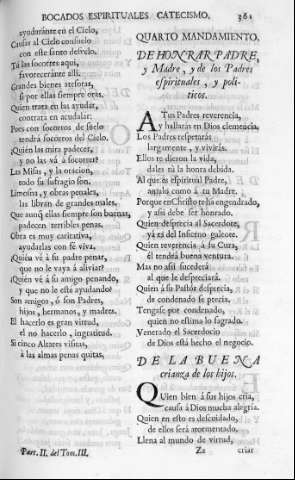 BOCADOS ESPIRITUALES CATECISMO. 361
ayudarànte en el Cielo,
Causar al Cielo consuelo
con este santo desvelo.
Tu las socorres aqui,
favorecerànte alli.
Grandes bienes atesora,
si por ellas siempre oras.
Quien trata en las ayudar,
contrata en acaudalar:
Pues con socorros de suelo
tendrà socorros del Cielo.
Quien las mira padecer,
y no las và à socorrer?
Las Missas, y la oracion,
todo su sufragio son.
Limosna, y obras penales,
las libran de grandes males,
Que aunq̃ ellas siempre son buenas,
padecen terribles penas.
Obra es muy caritativa,
ayudarlas con fè viva.
Quien vè à su padre penar,
que no le vaya à aliviar?
Quien vè à su amigo penando,
y que no le està ayudando?
Son amigos, ò son Padres,
hijos, hermanos, y madres.
El hacerlo es gran virtud,
el no hacerlo, ingratitud.
Si cinco Altares visitas,
à las almas penas quitas,
Part. II. del Tom. III.
QUARTO MANDAMIENTO.
DE HONRAR PADRE,
y Madre, y de los Padres
espirituales, y poli-
ticos.
A Tus Padres reverencia,
y hallaràs en Dios clemencia,
Los Padres respetaràs
largamente, y viviràs.
Ellos te dieron la vida,
dales tù la honra debida.
Al que es espiritual Padre,
amale como à tu Madre.
Porque en Christo te ha engendrado,
y assi debe ser honrado.
Quien desprecia al Sacerdote,
ya es del Infierno galeote.
Quien reverencia à su Cura,
èl tendrà buena ventura.
Mas no assi sucederà
al que le despreciarà.
Quien à su Pastor desprecia,
de condenado se precia.
Tengase por condenado,
quien no estima lo sagrado.
Venerado el Sacerdocio
de Dios està hecho el negocio.
DE LA BUENA
crianza de los hijos.
Quien bien à sus hijos cria,
causa à Dios mucha alegria.
Quien en esto es descuidado,
de ellos serà atormentado,
Llena al mundo de virtud,
Zz criar